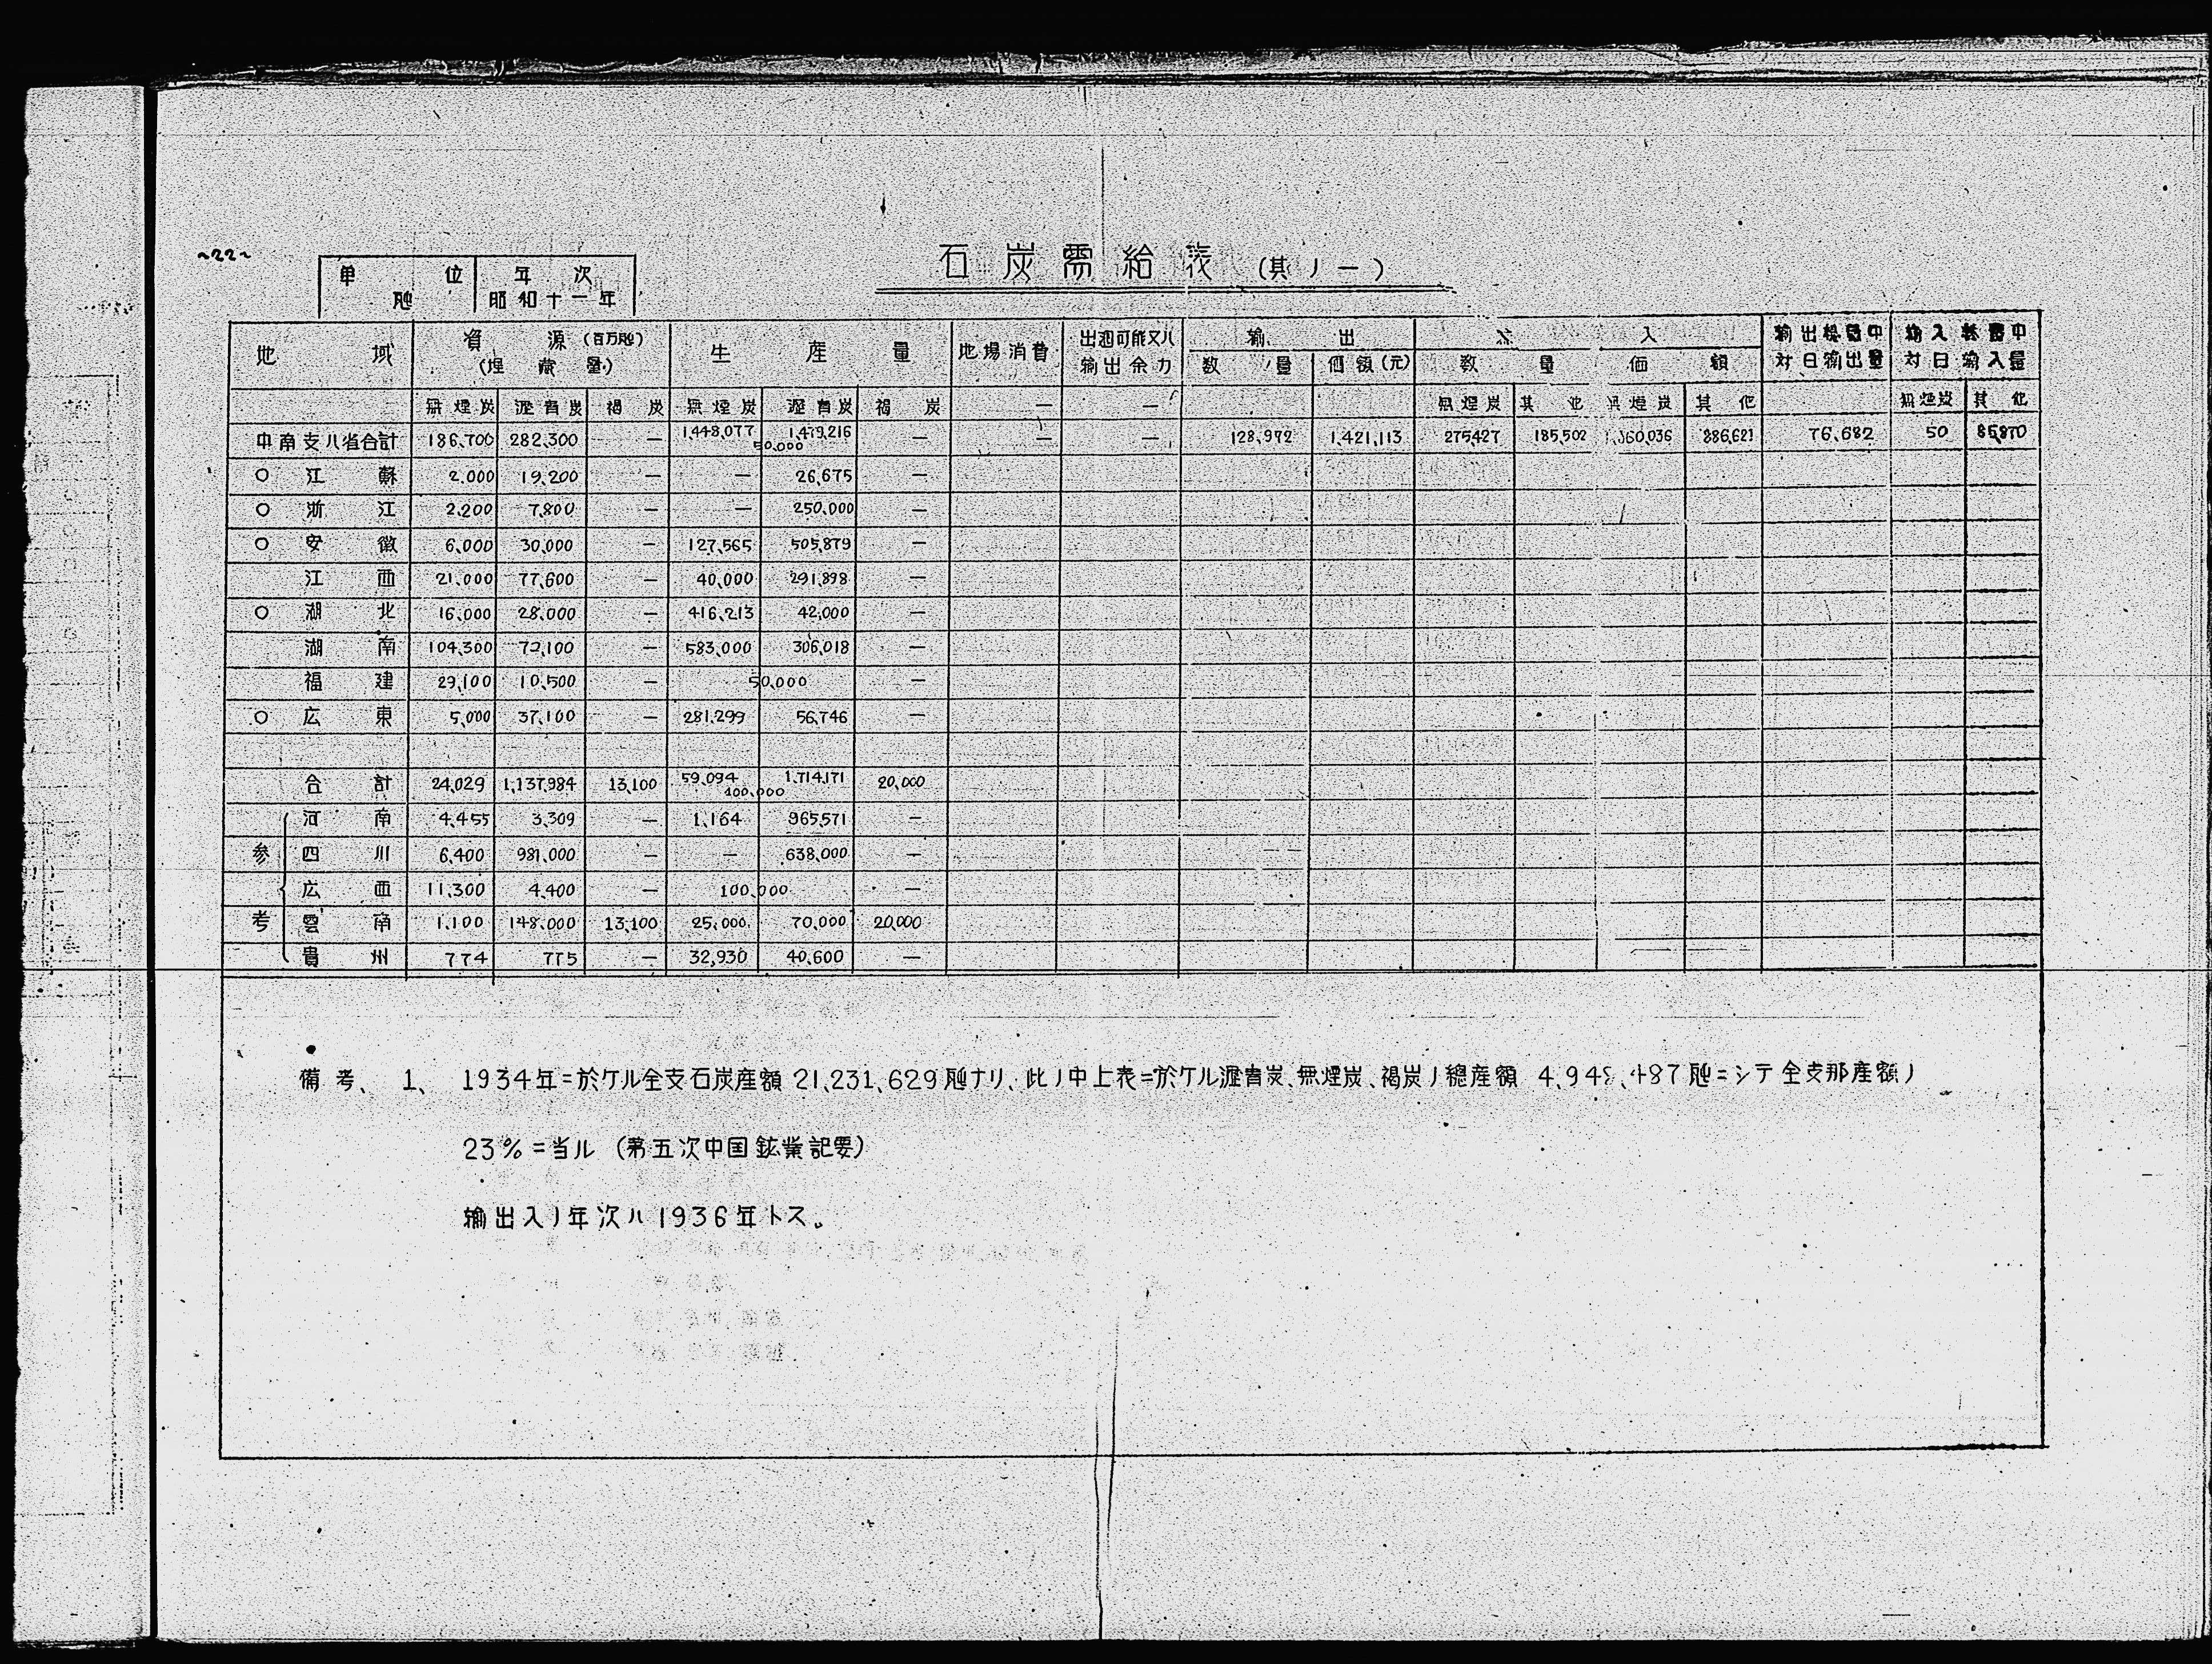 ~22~
石炭需給表 (其ノ一)
単位 年次
瓲 昭和十一年
地域 資源(百万瓲) (埋蔵量) 生産量 地場消費 出廻可能又ハ輸出余力 輸出 入 輸出総量中対日輸出量 輸入総量中対日輸入量
数量 価額(元) 数量 価額
無煙炭 瀝青炭 褐炭 無煙炭 瀝青炭 褐炭 — — 無煙炭 其他 無煙炭 其他 無煙炭 其他
中南支八省合計 186,700 282,300 — 1,448,077 1,479,216 50,000 — — — 128,972 1,421,113 275,427 185,502 886,621 76,682 50 85,870
○ 江蘇 2,000 19,200 — — 26,675 —
○ 浙江 2,200 7,800 — — 250,000 —
○ 安徽 6,000 30,000 — 127,565 505,879 —
江西 21,000 77,600 — 40,000 291,898 —
○ 湖北 16,000 28,000 — 416,213 42,000 —
湖南 104,300 72,100 — 583,000 306,018 —
福建 29,100 10,500 — 50,000 —
○ 広東 5,000 37,100 — 281,299 56,746 —
合計 24,029 1,137,984 13,100 59,094 1,714,171 100,000 20,000
参考
河南 4,455 3,309 — 1,164 965,571 —
四川 6,400 981,000 — — 638,000 —
広西 11,300 4,400 — 100,000 —
雲南 1,100 148,000 13,100 25,000 70,000 20,000
貴州 774 775 — 32,930 40,600 —
備考、 1、 1934年ニ於ケル全支石炭産額 21,231,629瓲ナリ、此ノ中上表ニ於ケル瀝青炭、無煙炭、褐炭ノ總産額 4,948,487瓲ニシテ全支那産額ノ
23%ニ当ル (第五次中国鉱業記要)
輸出入ノ年次ハ1936年トス。